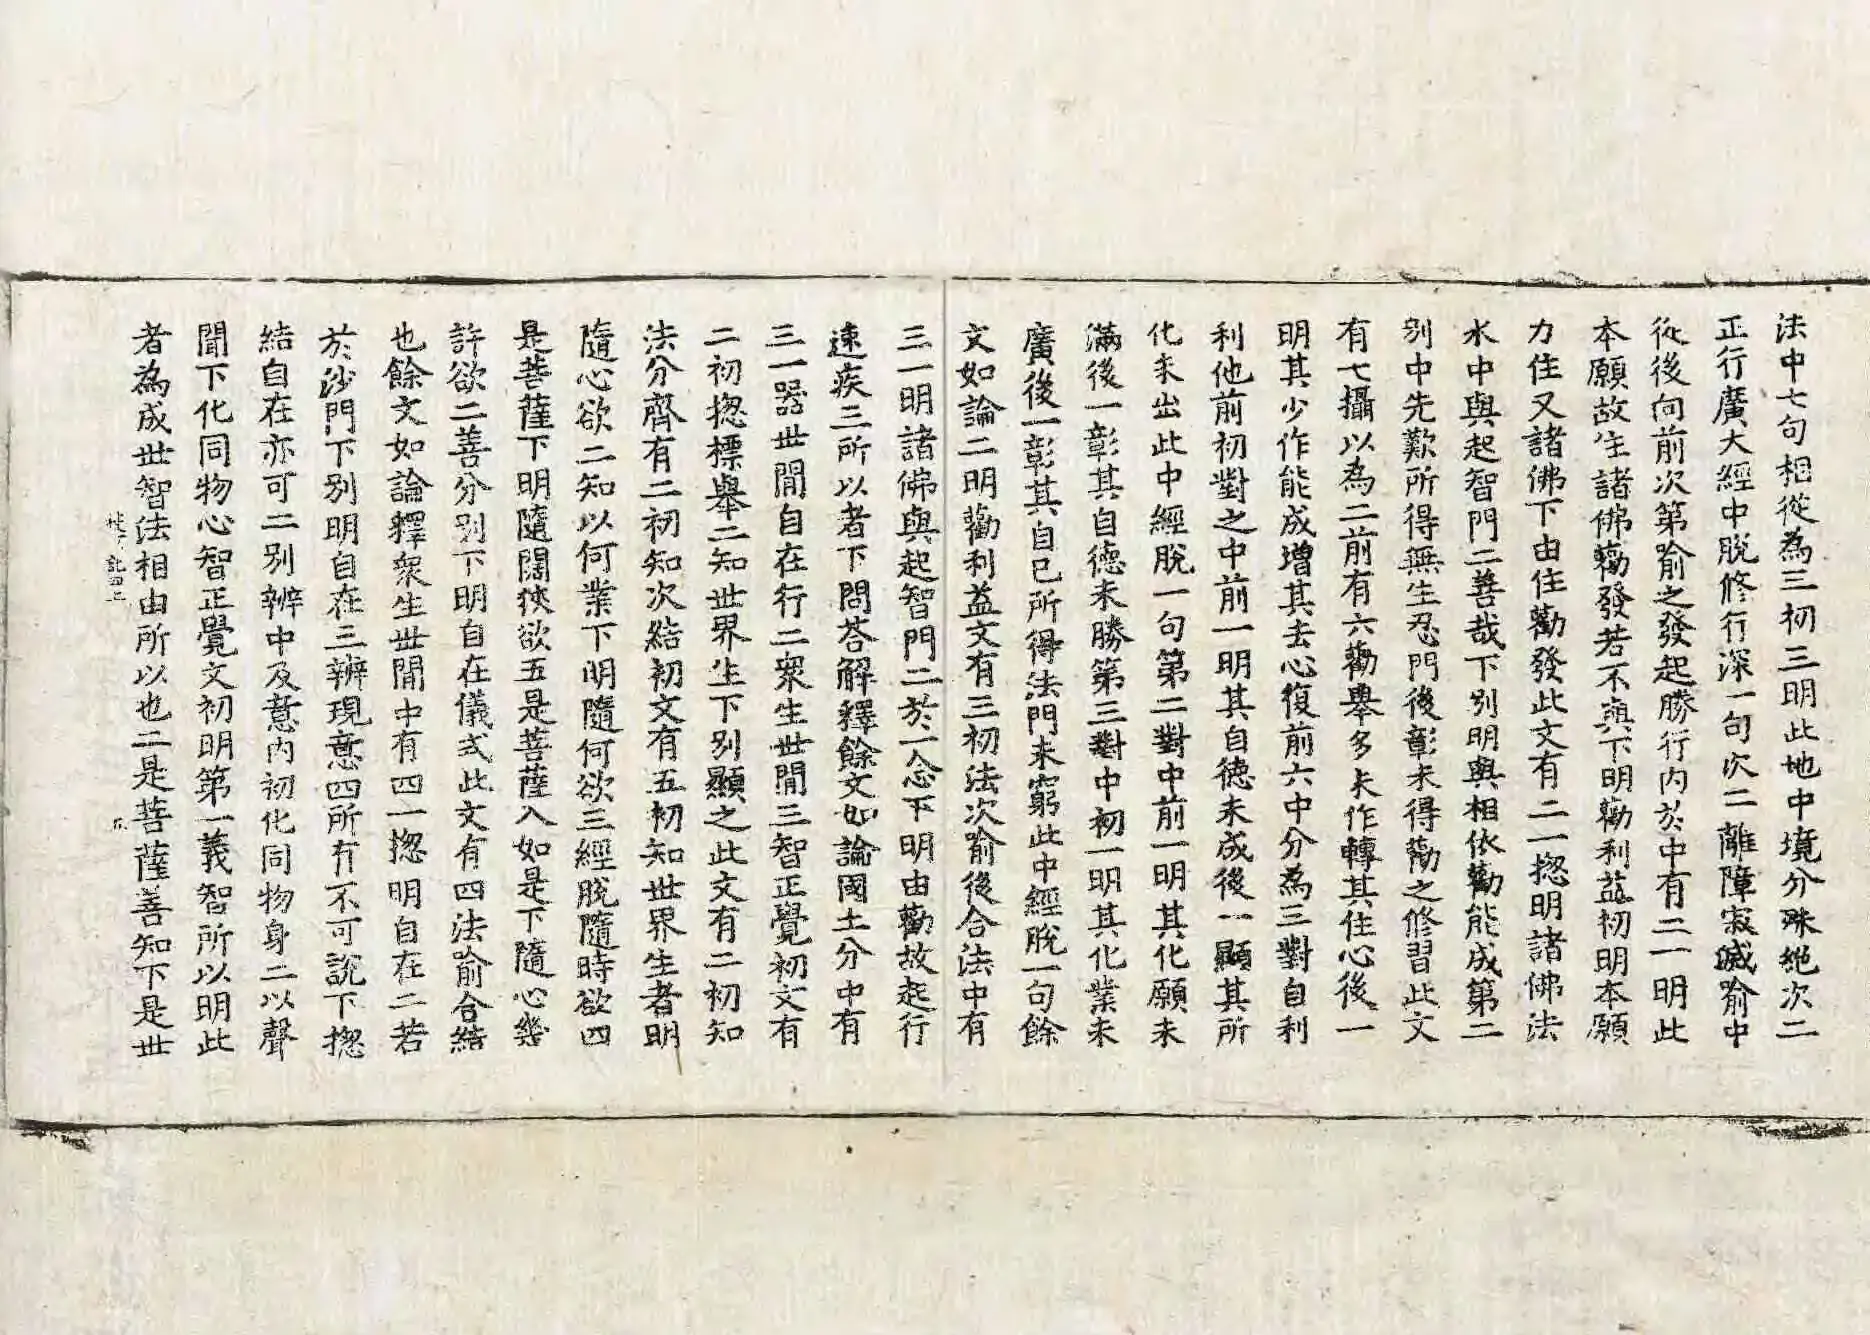 法中七句相從為三初三明此地中境分殊絶次二
正行廣大經中脫修行深一句次二離障寂滅喻中
從後向前次第喻之發起勝行內於中有二一明此
本願故生諸佛勸發若不與下明勸利益初明本願
力住又諸佛下由住勸發此文有二一揔明諸佛法
水中與起智門二善哉下別明與相依勸能成第二
別中先歎所得無生忍門後彰未得勸之修習此文
有七攝以為二前有六勸舉多未作轉其住心後一
明其少作能成增其去心復前六中分為三對自利
利他前初對之中前一明其自德未成後一顯其所
化未出此中經脫一句第二對中前一明其化願未
滿後一彰其自德未勝第三對中初一明其化業未
廣後一彰其自已所得法門未窮此中經脫一句餘
文如論二明勸利益文有三初法次喻後合法中有
三一明諸佛與起智門二於一念下明由勸故起行
速疾三所以者下問荅解釋餘文如論國土分中有
三一器世間自在行二衆生世間三智正覺初文有
二初揔標舉二知世界生下別顯之此文有二初知
法分齊有二初知次結初文有五初知世界生者明
隨心欲二知以何業下明隨何欲三經脫隨時欲四
是菩薩下明隨闊狹欲五是菩薩入如是下隨心幾
許欲二善分別下明自在儀式此文有四法喻合結
也餘文如論釋衆生世間中有四一揔明自在二若
於沙門下別明自在三辨現意四所有不可說下揔
結自在亦可二別辨中及意內初化同物身二以聲
聞下化同物心智正覺文初明第一義智所以明此
者為成世智法相由所以也二是菩薩善知下是世